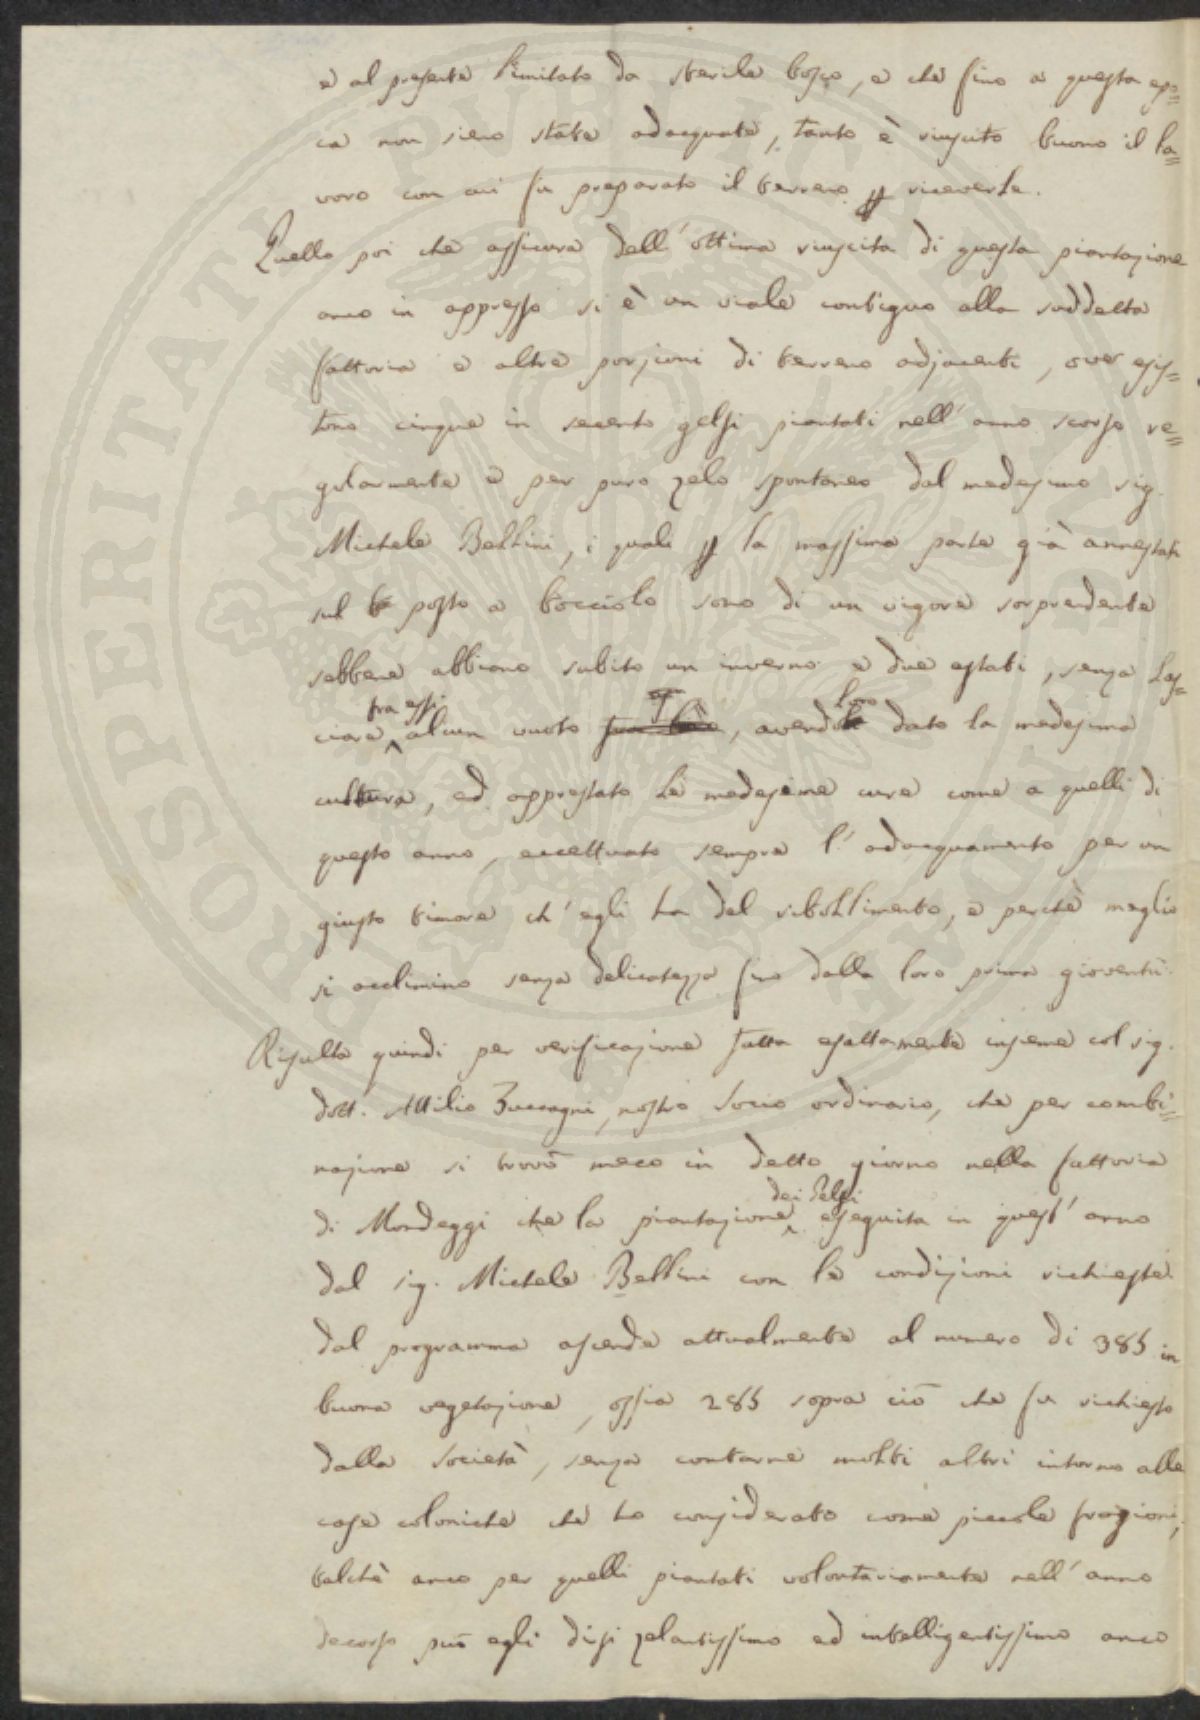 e al presente limitato da sterile bosco, e che fino a questa epo=
ca non sieno state adacquate, tanto è riuscito buono il la=
voro con cui fu preparato il terreno p riceverle.
Quello poi che assicura dell'ottima riuscita di questa piantazione
anco in appresso si è un viale contiguo alla suddetta
fattoria e altre porzioni di terreno adjacenti, over esis=
tono cinque in secento gelsi piantati nell'anno scorso re=
golarmente e per puro zelo spontaneo dal medesimo sig.
Michele Bellini, i quali p la massima parte già annestati
sul posto a bocciolo sono di un vigore sorprendente
sebbene abbiano subito un inverno e due estati, senza las=
ciare fra essi alcun vuoto, avendo loro dato la medesima
cultura, ed apprestato le medesime cure come a quelli di
questo anno, eccettuato sempre l'adacquamento per un
giusto timore ch'egli ha del ribollimento, e perchè meglio
si acclimino senza delicatezza fino dalla loro prima gioventù.
Risulta quindi per verificazione fatta esattamente insieme col sig.
dott. Attilio Zuccagni, nostro socio ordinario, che per combi=
nazione si trovò meco in detto giorno nella fattoria
di Mondeggi che la piantazione dei Gelsi eseguita in quest'anno
dal sig. Michele Bellini con le condizioni richieste
dal programma ascende attualmente al numero di 385 in
buona vegetazione, ossia 285 sopra ciò che fu richiesto
dalla Società, senza contarne molti altri intorno alle
case coloniche che ho considerato come piccole frazioni,
talchè anco per quelli piantati volontariamente nell'anno
decorso può egli dirsi zelantissimo ed intelligentissimo anco
PROSPERITATI PUBLICAE AUGENDAE